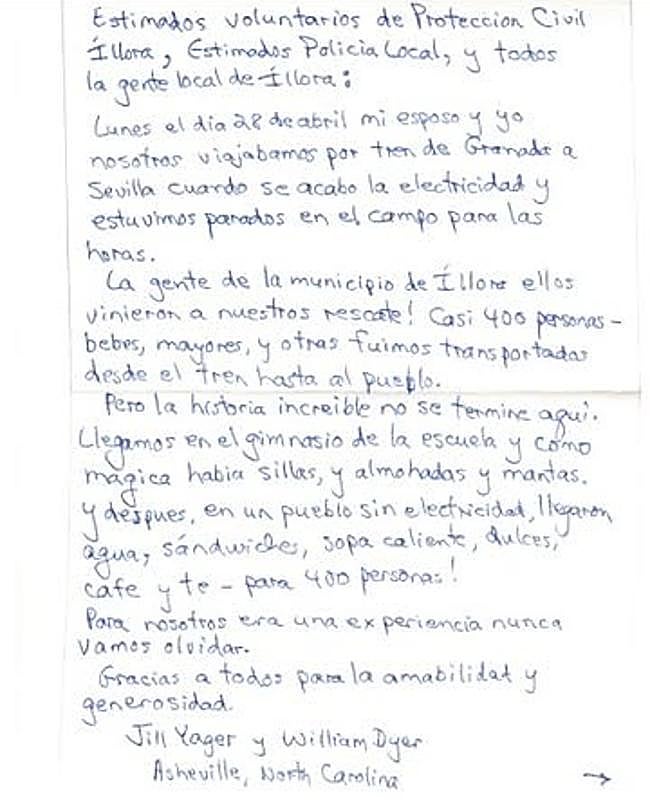 Estimados voluntarios de Proteccion Civil
Íllora, Estimados Policia Local, y todos
la gente local de Íllora:
Lunes el dia 28 de abril mi esposo y yo
nosotros viajabamos por tren de Granada a
Sevilla cuando se acabo la electricidad y
estuvimos parados en el campo para las
horas.
La gente de la municipio de Íllora ellos
vinieron a nuestros rescate! Casi 400 personas -
bebes, mayores, y otras fuimos transportadas
desde el tren hasta al pueblo.
Pero la historia increible no se termine aqui.
Llegamos en el gimnasio de la escuela y como
magica habia sillas, y almohadas y mantas.
y despues, en un pueblo sin electricidad, llegaron
agua, sándwiches, sopa caliente, dulces,
cafe y te - para 400 personas!
Para nosotros era una experiencia nunca
vamos olvidar.
Gracias a todos para la amabilidat y
generosidad.
Jill Yager y William Dyer
Asheville, North Carolina
→